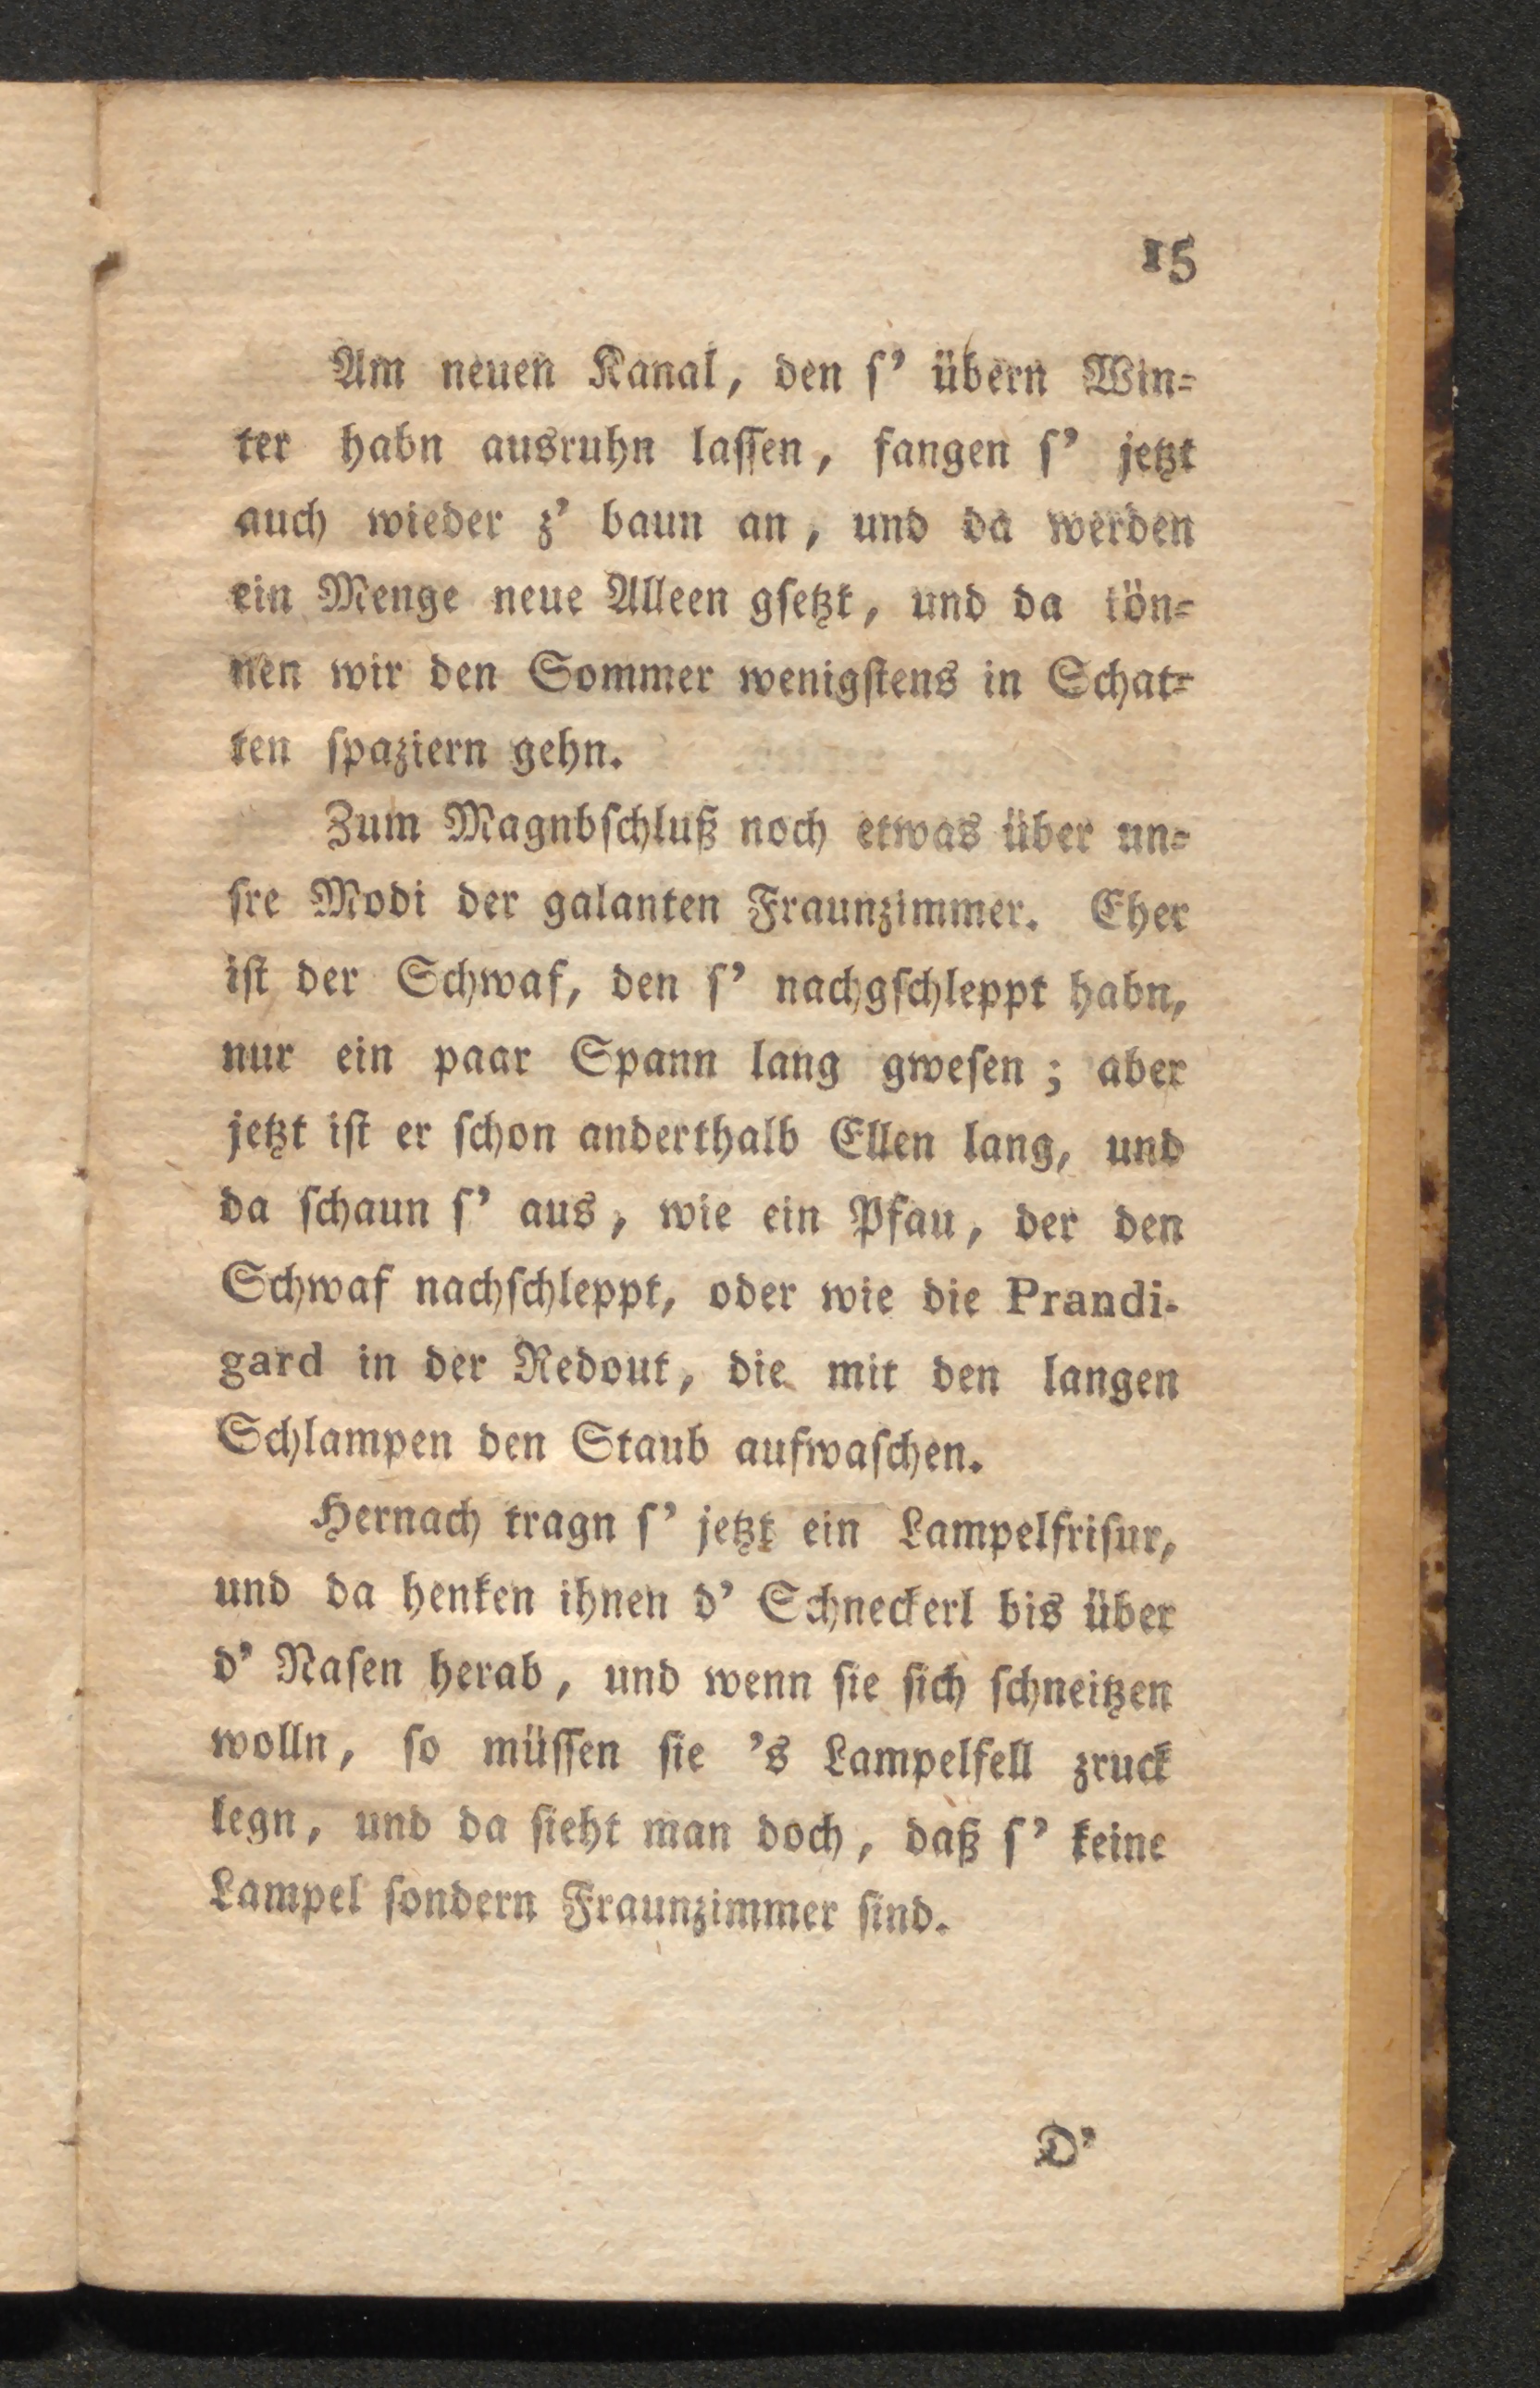 15
Am neuen Kanal, den ſ' übern Win⸗
ter habn ausruhn laſſen, fangen ſ' jetzt
auch wieder z' baun an, und da werden
ein Menge neue Alleen gſetzt, und da kön⸗
nen wir den Sommer wenigſtens in Schat⸗
ten ſpaziern gehn.
Zum Magnbſchluß noch etwas über un⸗
ſre Modi der galanten Fraunzimmer. Eher
iſt der Schwaf, den ſ' nachgſchleppt habn,
nur ein paar Spann lang gweſen; aber
jetzt iſt er ſchon anderthalb Ellen lang, und
da ſchaun ſ' aus, wie ein Pfau, der den
Schwaf nachſchleppt, oder wie die Prandi-
gard in der Redout, die mit den langen
Schlampen den Staub aufwaſchen.
Hernach tragn ſ' jetzt ein Lampelfriſur,
und da henken ihnen d' Schneckerl bis über
d' Naſen herab, und wenn ſie ſich ſchneitzen
wolln, ſo müſſen ſie 's Lampelfell zruck
legn, und da ſieht man doch, daß ſ' keine
Lampel ſondern Fraunzimmer ſind.
D'